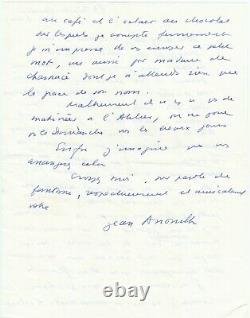 au café et l'odeur du chocolat
sur lesquels je compte fermement
je m'empresse de vous envoyer ce petit
mot, aussi par madame de
dont je n'attends rien que
la grace de son nom.
Malheureusement il n'y a pas de
matinées à l'Atelier, on ne joue
pas le dimanche les beaux jours
Enfin j'imagine que vous
arrangerez cela.
Croyez moi, sur parole de
fantome, respectueusement et amicalement
votre
Jean Anouilh
ebay